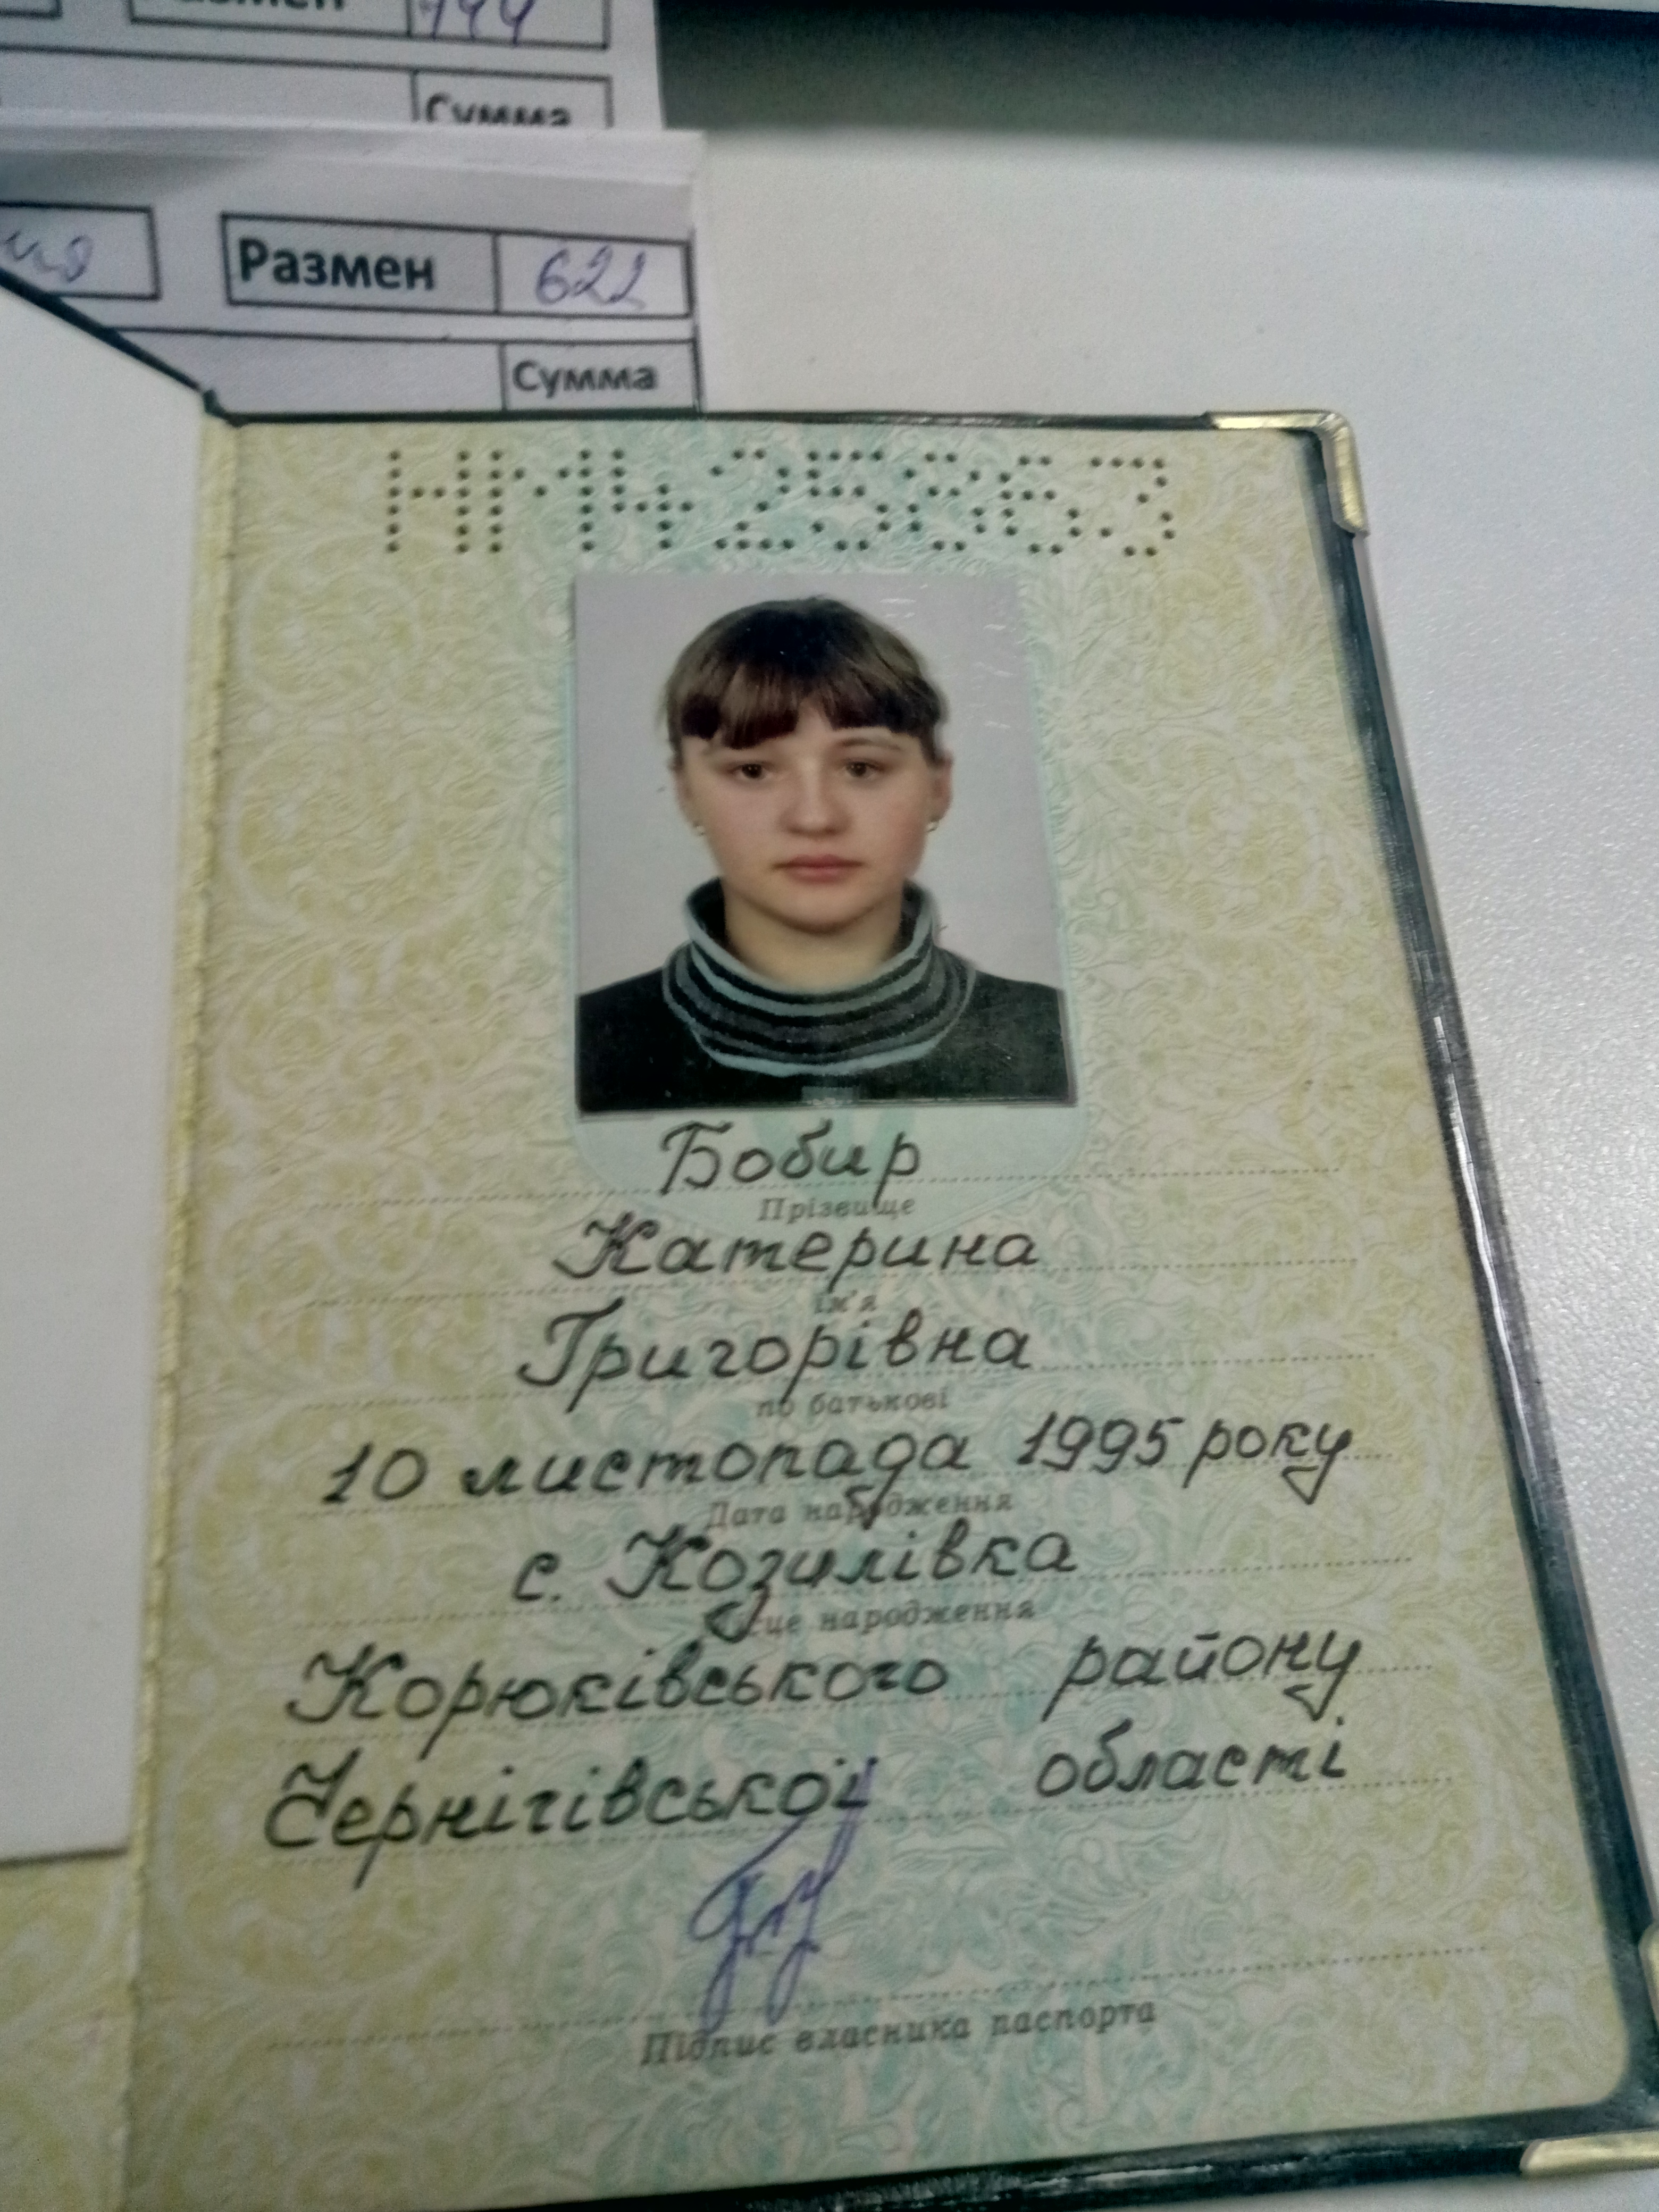 Размен
Сумма
Размен 622
Сумма
НМ425863
Бобир
Прізвище
Катерина
ім'я
Григорівна
по батькові
10 листопада 1995 року
Дата народження
с. Козилівка
Місце народження
Корюківського району
Чернігівської області
Підпис власника паспорта